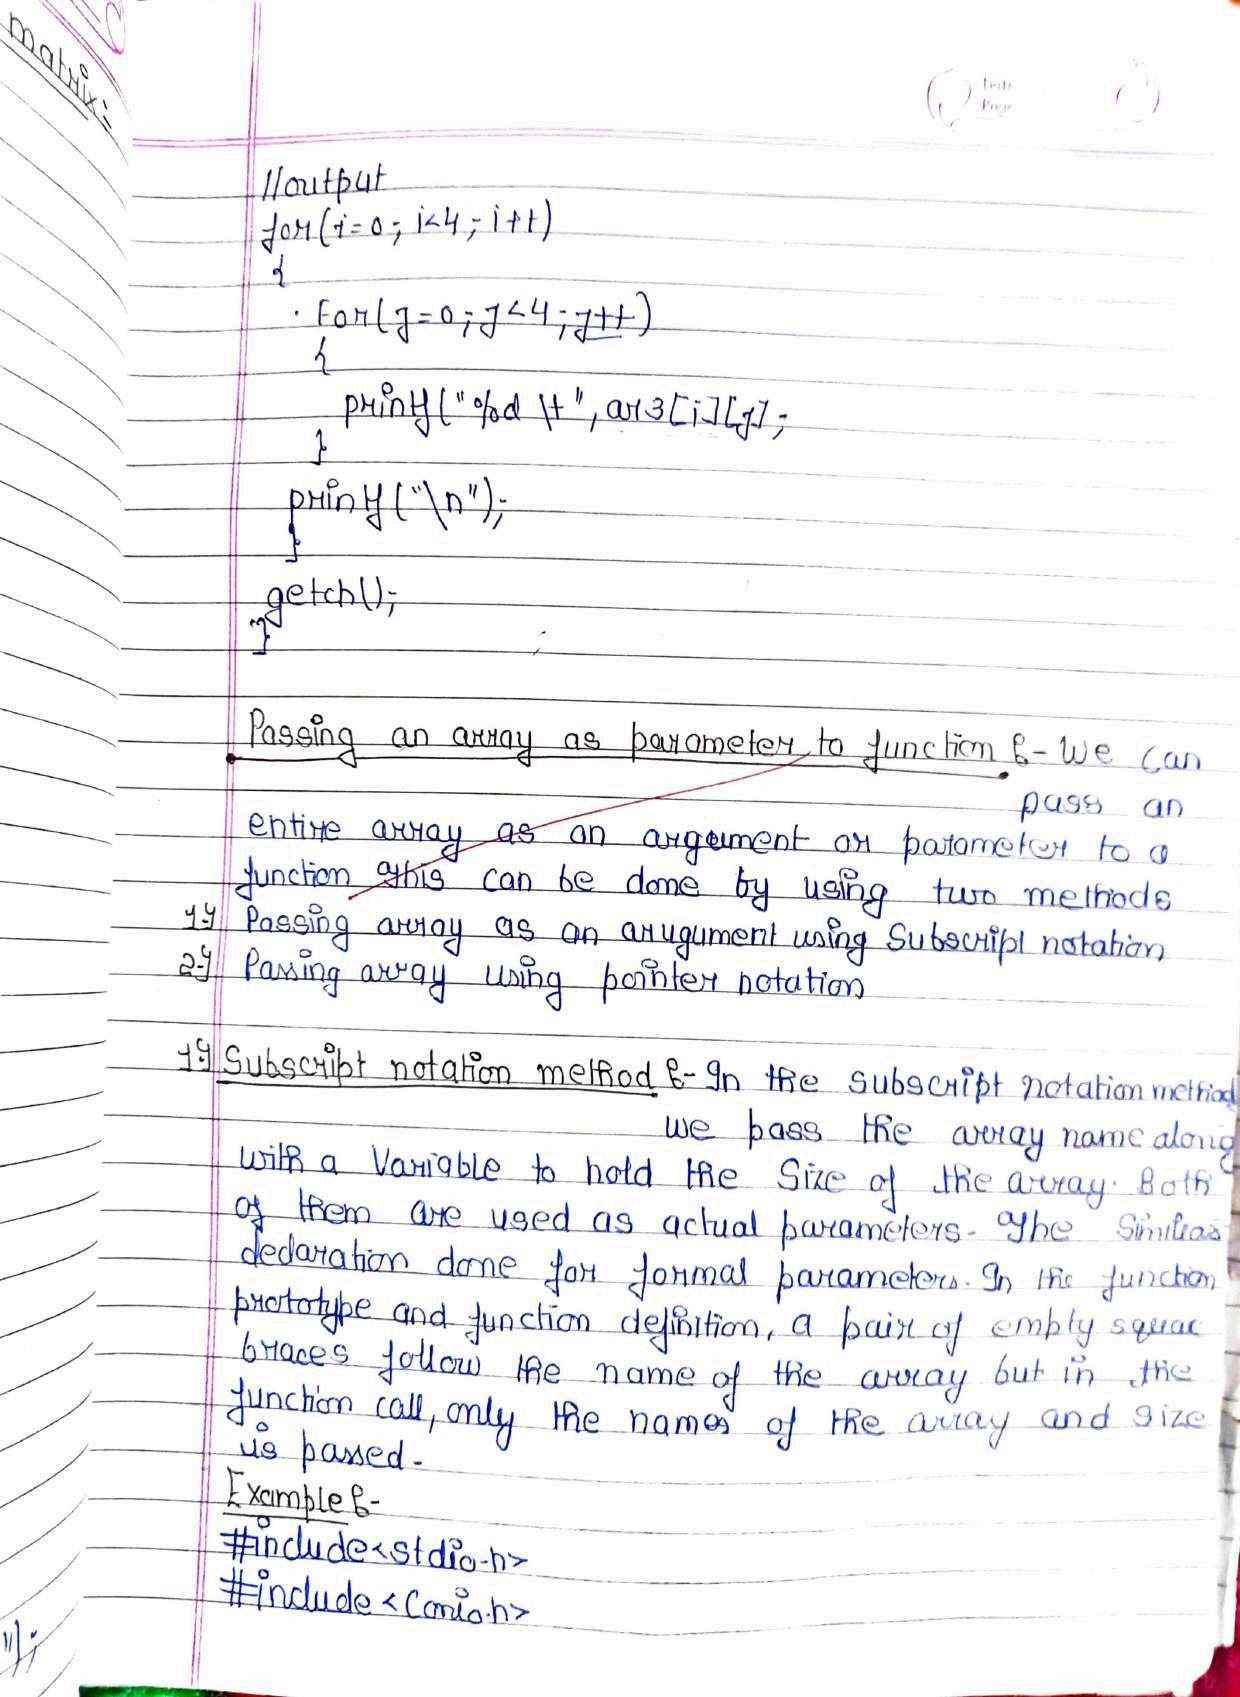 matrix:-
//output
for(i=0; i<4; i++)
{
For(j=0; j<4; j++)
{
printf("%d \t", ar3[i][j];
}
printf("\n");
}
getch();
}
Passing an array as parameter to function :- We can
pass an
entire array as an argument or parameter to a
function This can be done by using two methods
1.) Passing array as an arugument using Subscript notation
2.) Passing array using pointer notation
1.) Subscript notation method :- In the subscript notation method
we pass the array name along
with a Variable to hold the Size of the array. Both
of them are used as actual parameters. The
declaration done for formal parameters. In the function
prototype and function definition, a pair of empty
braces follow the name of the array but in the
function call, only the names of the array and size
is passed.
Example :-
#include<stdio.h>
#include<conio.h>
");